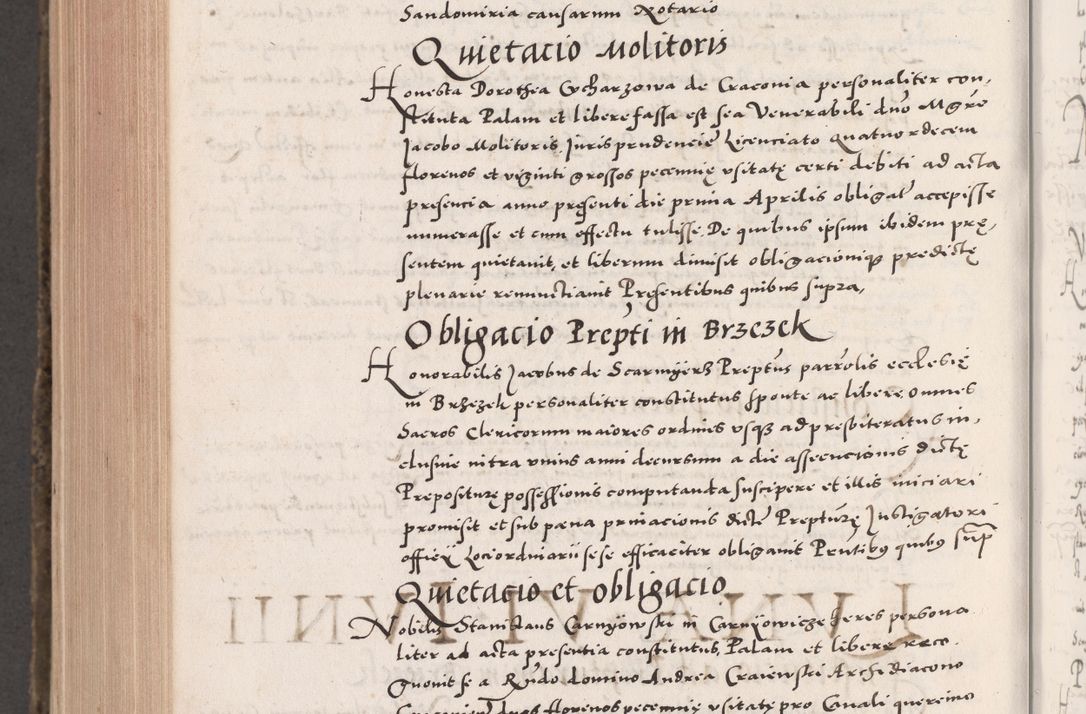 Sandomiria causarum Notario
Quietacio Molitoris
Honesta Dorothea Cvcharzowa de Cracovia personaliter con-
stituta Palam et libere fassa est sea Venerabili dno Mgro
Jacobo Molitoris Jurisprudencie Licenciato Quatuordecem
florenos et viginti grossos pecunię vsitatę certi debiti ad acta
presencia anno presenti die prima Aprilis obligat accepisse
numerasse et cum effectu tulisse. De quibus ipsum ibidem prę-
sentem quietauit, et liberum dimisit obligacionique predictę
plenarie renunctiauit Presentibus quibus supra,
Obligacio Prepti in Brzezek
Honorabilis Jacobus de Scarmyerz Preptus parrolis ecclesię
in Brzezek personaliter constitutus sponte ac libere omnes
Sacros Clericorum maiores ordines vsque ad presbiteratus in-
clusiue intra vnius anni decursum a die assecucionis dictę
Prepositurę possessionis computanda suscipere et illis iniciari
promisit et sub pena priuacionis dicte Prepturę Instigatori
officii Loci ordinarii sese efficaciter obligauit Pentibus quibus sup
Quietacio et obligacio
Nobilis Stanislaus Carnyowski in Carnyowicze heres persona
liter ad acta presentia constitutus, Palam et libere reco-
gnouit se a Rndo domino Andrea Craiewski Archidiacono
duos florenos pecunię vsitatę pro Canali